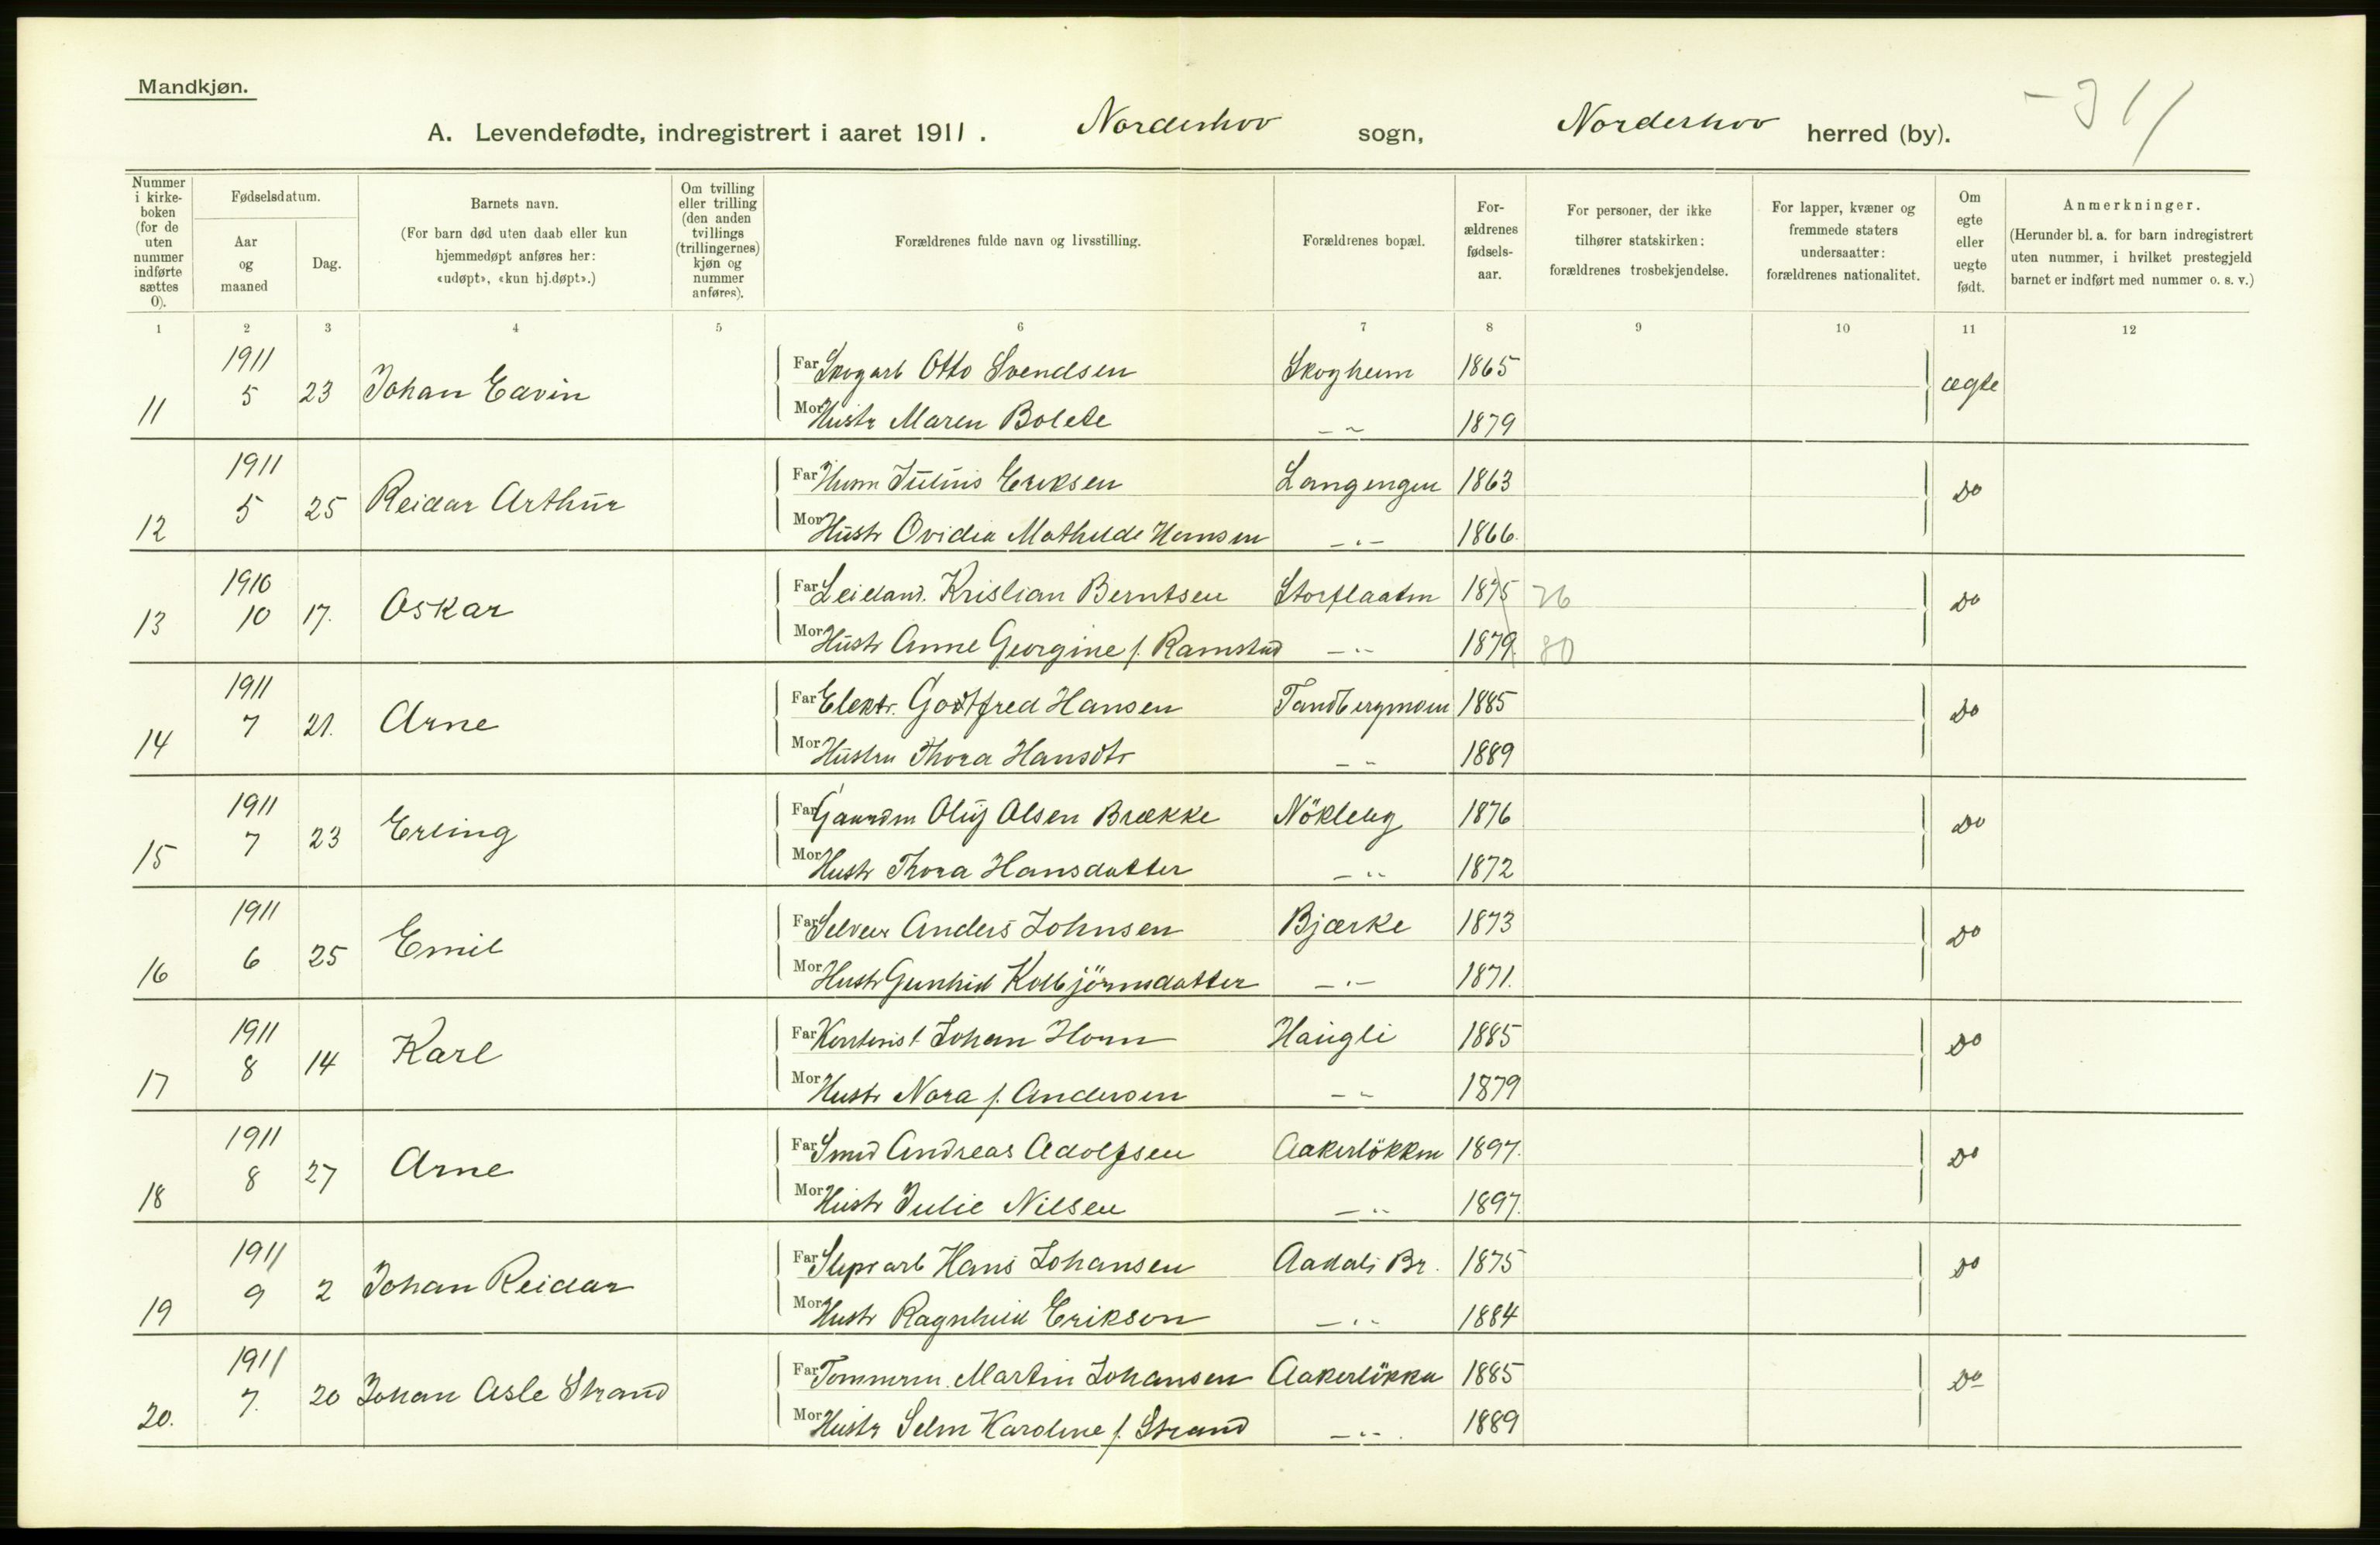 Mandkjøn.
- 3 11
A. Levendefødte, indregistrert i aaret 1911. Norderhov sogn, Norderhov herred (by).
Nummer i kirke-boken (for de uten nummer indførte sættes 0).
Fødselsdatum.
Aar og maaned
Dag.
Barnets navn.
(For barn død uten daab eller kun hjemmedøpt anføres her: «udøpt», «kun hj.døpt».)
Om tvilling eller trilling (den anden tvillings (trillingernes) kjøn og nummer anføres).
Forældrenes fulde navn og livsstilling.
Forældrenes bopæl.
For-ældrenes fødsels-aar.
For personer, der ikke tilhører statskirken: forældrenes trosbekjendelse.
For lapper, kvæner og fremmede staters undersaatter: forældrenes nationalitet.
Om egte eller uegte født.
Anmerkninger.
(Herunder bl. a. for barn indregistrert uten nummer, i hvilket prestegjeld barnet er indført med nummer o. s. v.)
1 2 3 4 5 6 7 8 9 10 11 12
11 1911 5 23 Johan Edvin Far Skogarb Otto Svendsen Skogheim 1865 ægte
Mor Hustr Maren Bolete - " - 1879
12 1911 5 25 Reidar Arthur Far Julius Eriksen Langengen 1863 Do
Mor Hustr Ovidia Mathilde Hansen - " - 1866.
13 1910 10 17. Oskar Far Leiland. Kristian Berntsen Storflaaten 1875 76 Do
Mor Hustr Anne Georgine f. Ramstad - " - 1879. 80
14 1911 7 21. Arne Far Elektr. Gottfred Hansen Tandbergmoen 1885 Do
Mor Hustru Thora Hansdtr - " - 1889
15 1911 7 23 Erling Far Gaardm Oluf Olsen Brække Nökleby 1876 Do
Mor Hustr Thora Hansdatter - " - 1872
16 1911 6 25 Emil Far Selveier Anders Johnsen Bjærke 1873 Do
Mor Hustr Gunhild Kolbjörnsdatter - " - 1871.
17 1911 8 14 Karl Far Kontorist Johan Horn Haugli 1885 Do
Mor Hustr Nora f. Andersen - " - 1879
18 1911 8 27 Arne Far Smed Andreas Adolfsen Aakerlökken 1897. Do
Mor Hustr Julie Nilsen - " - 1897.
19 1911 9 2 Johan Reidar Far Slipr arb Hans Johansen Aadals Br. 1875 Do
Mor Hustr Ragnhild Erikson - " - 1884
20. 1911 7. 20 Johan Asle Strand Far Tømmerm. Martin Johansen Aakerlökka 1885 Do
Mor Hustr Selm Karoline f. Strand - " - 1889